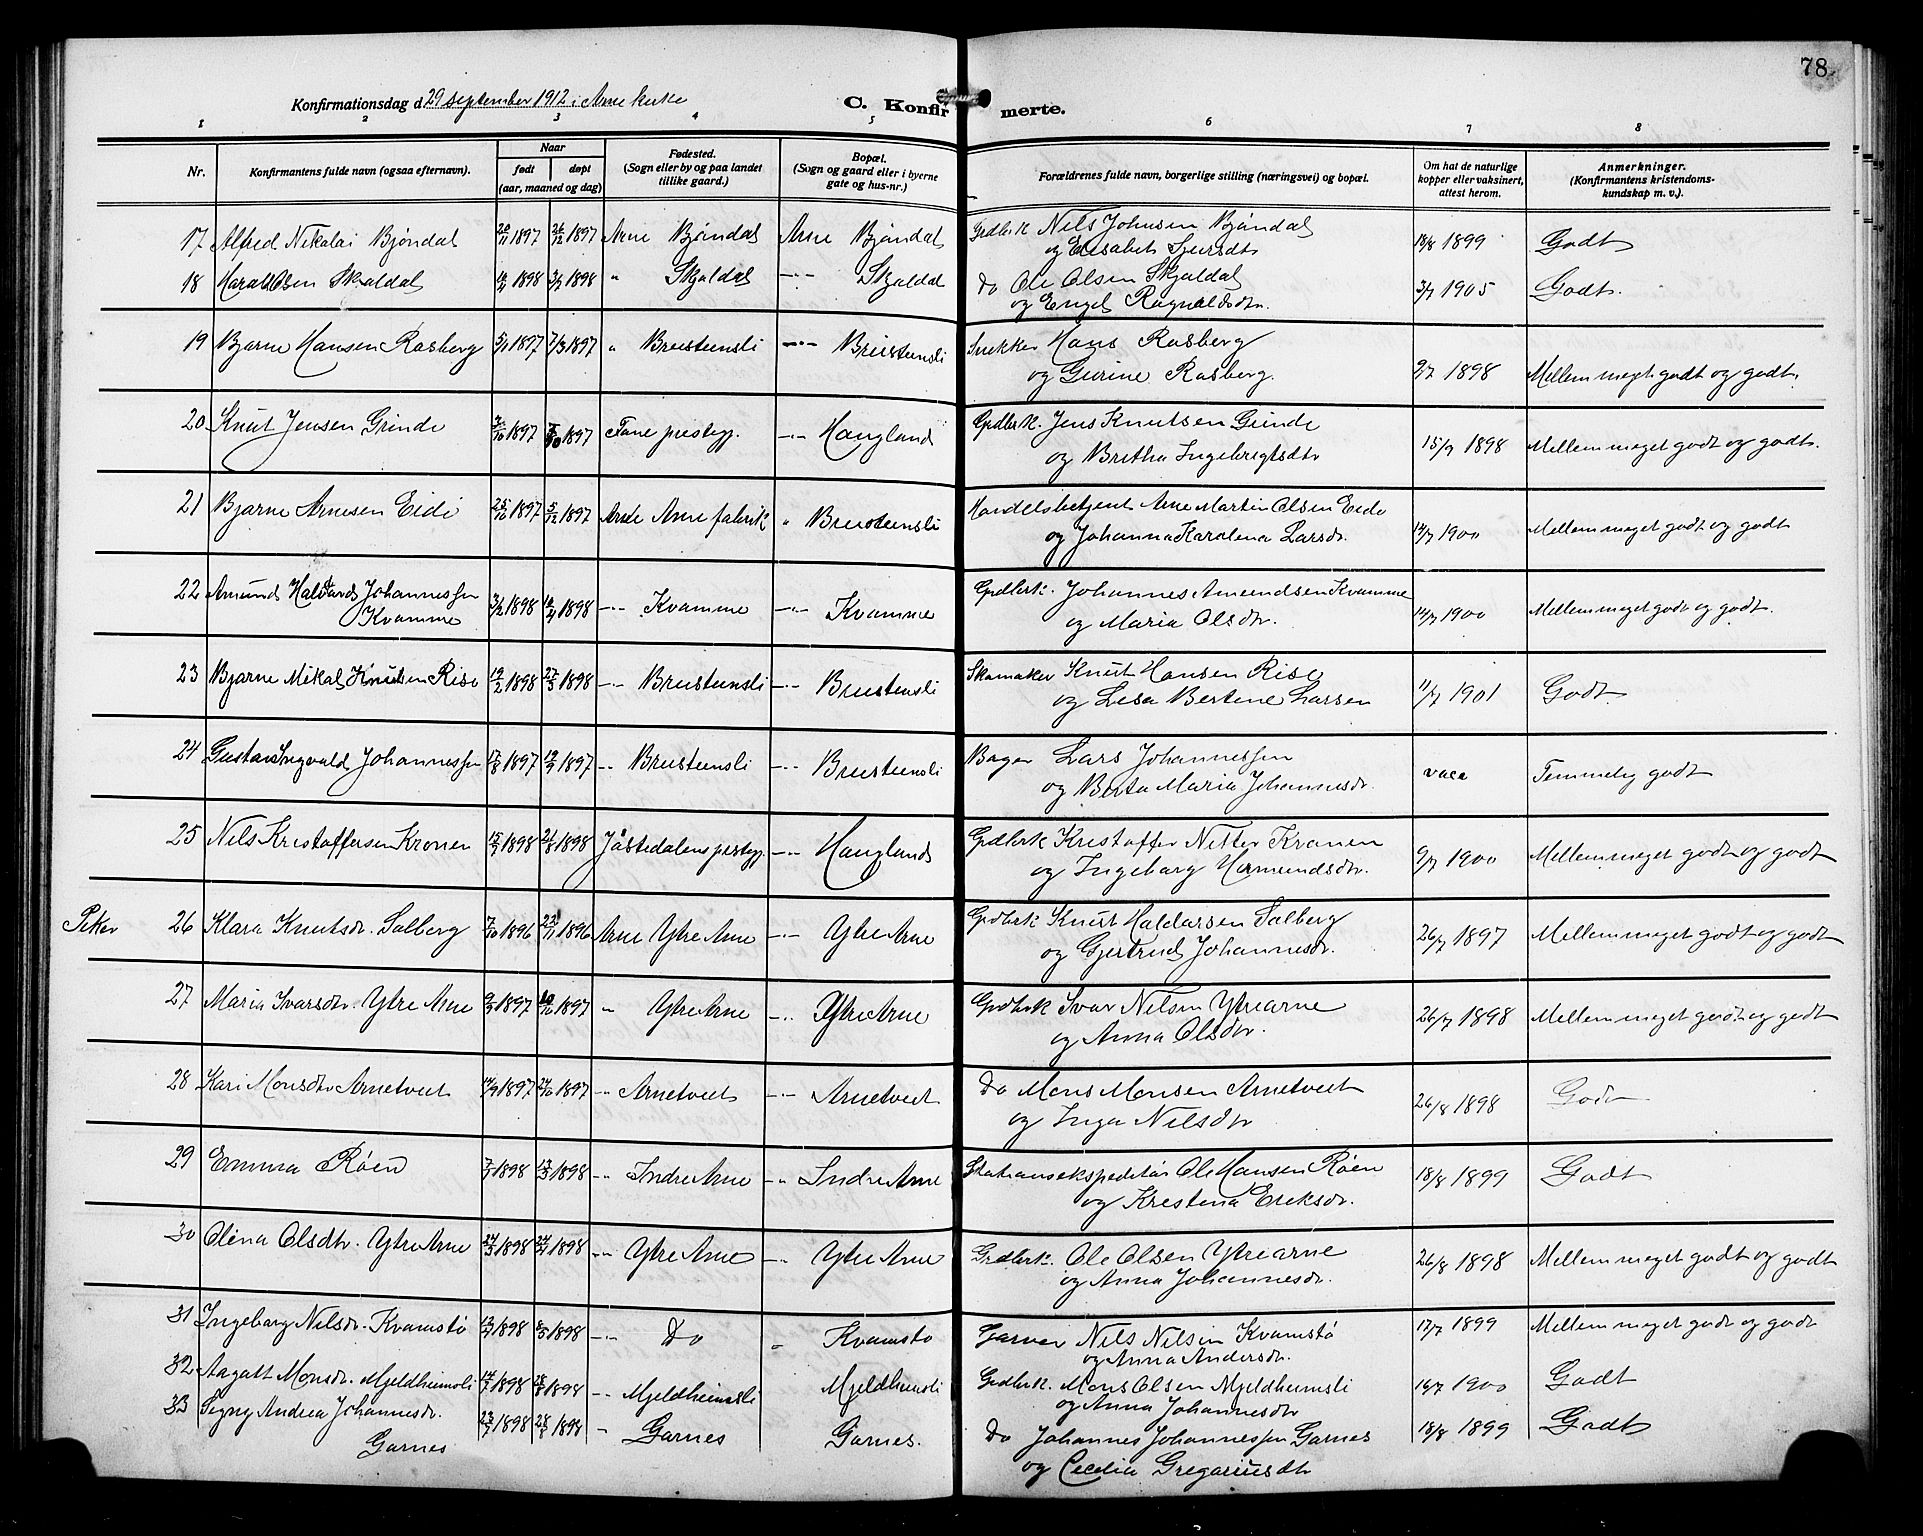 78.
Konfirmationsdag d 29 september 1912 i Arne kirke
C. Konfirmerte.
1 2 3 4 5 6 7 8
Nr. Konfirmantens fulde navn (ogsaa efternavn). Naar født døpt (aar, maaned og dag) Fødested. (Sogn eller by og paa landet tillike gaard.) Bopæl. (Sogn og gaard eller i byerne gate og hus-nr.) Forældrenes fulde navn, borgerlige stilling (næringsvei) og bopæl. Om hat de naturlige kopper eller vaksinert, attest herom. Anmerkninger. (Konfirmantens kristendomskundskap m. v.).
17 Alfred Nikolai Bjøndal 20/11 1897 26/12 1897 Arne Bjøndal Arne Bjøndal Grdbrk Nils Johnsen Bjøndal 18/8 1899 Godt
og Elisabet Sjursdtr
18 Harald Olsen Skjoldal 1898 1898 " Skjoldal -"- Skjoldal Do Ole Olsen Skjoldal 3/7 1905 Godt.
og Engel Ragnaldsdtr.
19 Bjarne Hansen Rasberg 5/1 1897 7/3 1897 " Breisteinsli -"- Breisteinsli Snekker Hans Rasberg
og Gurine Rasberg. 9/7 1898 Mellem meget godt og godt.
20 Knut Jensen Grinde 3/10 1897 1897 Fane prestegj. -"- Haugland Grdbrk. Jens Knutsen Grinde
og Britha Ingebrigtsdtr 15/9 1898 Mellem meget godt og godt.
21 Bjarne Arnesen Eide 25/10 1897 5/12 1897 Arne Arne fabrik " Breisteinsli Handelsbetjent Arne Martin Olsen Eide
og Johanna Karolena Larsdr. 14/7 1900 Mellem meget godt og godt
22 Amund Halvards Johannessen Kvamme 3/2 1898 1898 -"- Kvamme -"- Kvamme Grdbrk. Johannes Amundsen Kvamme
og Maria Olsdtr. 14/7 1900 Mellem meget godt og godt.
23 Bjarne Mikal Knutsen Rise 19/2 1898 27/3 1898 -"- Breisteinsli -"- Breisteinsli Skomaker Knut Hansen Rise
og Lesa Bertene Larsen 11/7 1901 Godt.
24 Gustav Ingvald Johannessen 17/8 1897 12/9 1897 -"- Breisteinsli -"- Breisteinsli Bager Lars Johannessen
og Berta Maria Johannesdr. vacc Temmelig godt
25 Nils Kristoffersen Kronen 15/7 1898 21/8 1898 Jåstedalens prestegj. -"- Hauglands Grdbrk Kristoffer Nitter Kronen
og Ingeborg Hermundsdtr. 9/7 1900 Mellem meget godt og godt
Piker 26 Klara Knutsdr. Solberg 7/10 1896 22/11 1896 Arne Ytre Arne -"- Ytre Arne Grdbrk Knut Haldorsen Solberg
og Gjertrud Johannesdr. 26/7 1897 Mellem meget godt og godt
27 Maria Ivarsdtr. Ytre Arne 9/9 1897 10/10 1897 " Ytre Arne -"- Ytre Arne Grdbrk Ivar Nilsen Ytrearne
og Anna Olsdtr. 26/7 1898 Mellem meget godt og godt
28 Kari Monsdtr Arnetveit 14/9 1897 24/10 1897 -"- Arnetveit -"- Arnetveit Do Mons Monsen Arnetveit
og Inga Nilsdtr 26/8 1898 Godt
29 Emma Røen 7/1 1898 13/3 1898 -"- Indre Arne -"- Indre Arne Stationsekspeditør Ole Hansen Røen
og Kristena Eriksdr. 18/8 1899 Godt
30 Olina Olsdtr. Ytre Arne 24/3 1898 24/4 1898 -"- Ytre Arne -"- Ytre Arne Grdbrk. Ole Olsen Ytrearne
og Anna Johannesdr. 26/8 1898 Mellem meget godt og godt
31 Ingeborg Nilsdr. Kvamstø 1898 8/5 1898 -"- Do " Kvamstø Garver Nils Nilsen Kvamstø 17/7 1899 Mellem meget godt og godt
og Anna Andersdr.
32 Aagott Monsdr. Mjeldheimsli 1898 1898 -"- Mjeldheimsli Mjeldheimsli Grdbrk. Mons Olsen Mjeldheimsli 14/7 1900 Godt
og Anna Johannesdtr
33 Signy Andrea Johannesdr. Garnes 23/7 1898 28/8 1898 - Garnes Garnes. Do Johannes Johannessen Garnes 18/8 1899 Godt
og Cecilia Gregoriusdtr